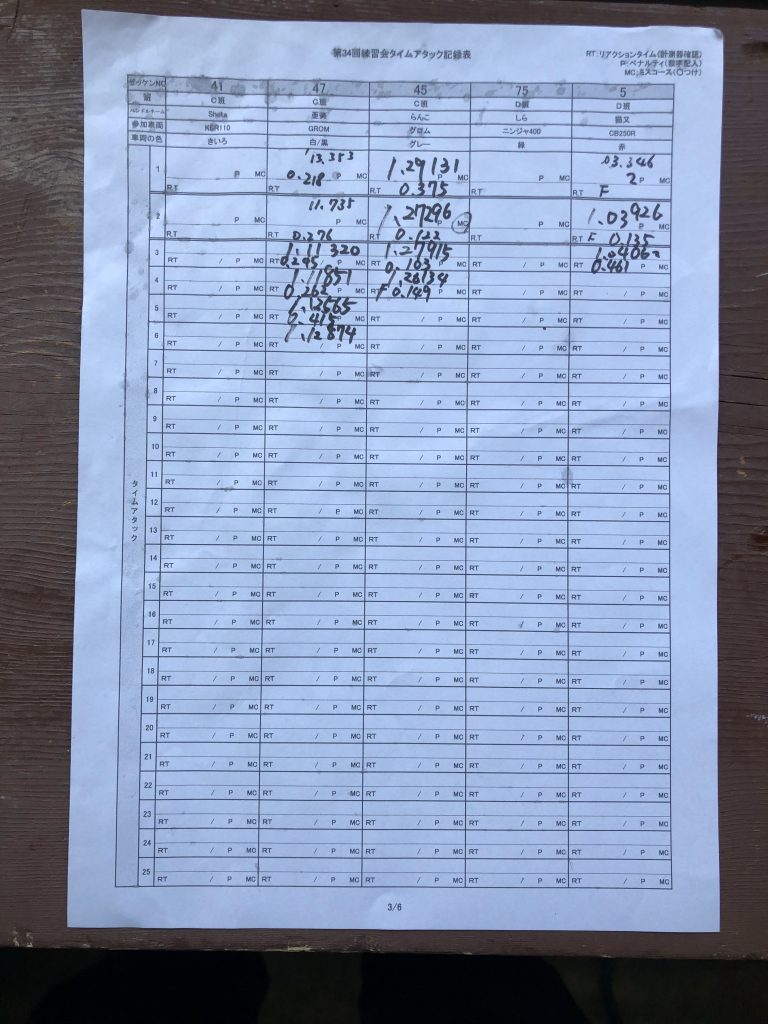 第34回練習会タイムアタック記録表
RT:リアクションタイム(計測器確認)
P:ペナルティ(数字記入)
MC:ミスコース(〇つけ)
ゼッケンNO 41 47 45 75 5
班 C班 C班 C班 D班 D班
ハンドルネーム Sheita 亜美 らんこ しら 猫又
参加車両 KSR110 GROM グロム ニンジャ400 CB250R
車両の色 きいろ 白/黒 グレー 緑 赤
タイムアタック
1 P MC '13.353 P MC 1.29131 P MC P MC 03.346 2 P MC
R.T R.T 0.218 R.T 0.375 R.T R.T F
2 P MC 11.735 P MC 1.27296 P MC P MC 1.03926 P MC
R.T R.T 0.276 R.T 0.122 R.T R.T F 0.135
3 1.11320 1.27915
RT / P MC RT 0.245 / P MC RT 0.163 / P MC RT / P MC RT 0.461 / P MC
4 1.11851 1.26134
RT / P MC RT 0.262 / P MC RT F 0.149 / P MC RT / P MC RT / P MC
5 1.12565
RT / P MC RT 0.415 / P MC RT / P MC RT / P MC RT / P MC
6 1.12874
RT / P MC RT / P MC RT / P MC RT / P MC RT / P MC
7
RT / P MC RT / P MC RT / P MC RT / P MC RT / P MC
8
RT / P MC RT / P MC RT / P MC RT / P MC RT / P MC
9
RT / P MC RT / P MC RT / P MC RT / P MC RT / P MC
10
RT / P MC RT / P MC RT / P MC RT / P MC RT / P MC
11
RT / P MC RT / P MC RT / P MC RT / P MC RT / P MC
12
RT / P MC RT / P MC RT / P MC RT / P MC RT / P MC
13
RT / P MC RT / P MC RT / P MC RT / P MC RT / P MC
14
RT / P MC RT / P MC RT / P MC RT / P MC RT / P MC
15
RT / P MC RT / P MC RT / P MC RT / P MC RT / P MC
16
RT / P MC RT / P MC RT / P MC RT / P MC RT / P MC
17
RT / P MC RT / P MC RT / P MC RT / P MC RT / P MC
18
RT / P MC RT / P MC RT / P MC RT / P MC RT / P MC
19
RT / P MC RT / P MC RT / P MC RT / P MC RT / P MC
20
RT / P MC RT / P MC RT / P MC RT / P MC RT / P MC
21
RT / P MC RT / P MC RT / P MC RT / P MC RT / P MC
22
RT / P MC RT / P MC RT / P MC RT / P MC RT / P MC
23
RT / P MC RT / P MC RT / P MC RT / P MC RT / P MC
24
RT / P MC RT / P MC RT / P MC RT / P MC RT / P MC
25
RT / P MC RT / P MC RT / P MC RT / P MC RT / P MC
3/6